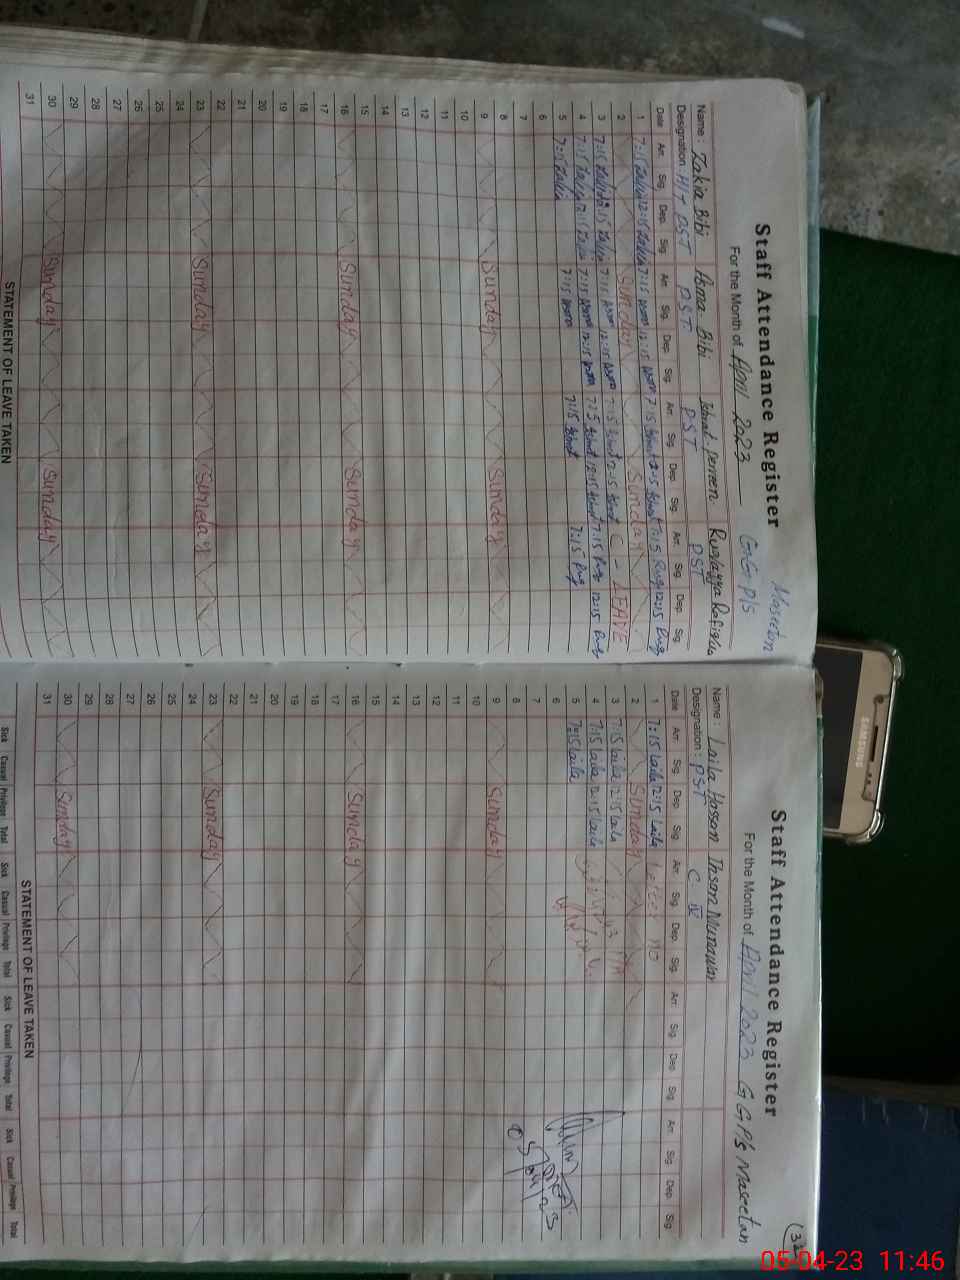 Staff Attendance Register
For the Month of April 2023 GGP/S Naseetan
Name : Zakia Bibi Asma Bibi Ishrat Perveen Ruqayya Rafique
Designation H/T PST PST PST PST
Date Arr. Sig. Dep. Sig. Arr. Sig. Dep. Sig. Arr. Sig. Dep. Sig. Arr. Sig. Dep. Sig.
1 7:15 Zakia 12:15 Zakia 7:15 Asma 12:15 Asma 7:15 Ishrat 12:15 Ishrat 7:15 Ruq 12:15 Ruq
2 Sunday Sunday
3 7:15 Zakia 12:15 Zakia 7:15 Asma 12:15 Asma 7:15 Ishrat 12:15 Ishrat C - LEAVE
4 7:15 Zakia 12:15 Zakia 7:15 Asma 12:15 Asma 7:15 Ishrat 12:15 Ishrat 7:15 Ruq 12:15 Ruq
5 7:15 Zakia 7:15 Asma 7:15 Ishrat 7:15 Ruq
6
7
8
9 Sunday Sunday
10
11
12
13
14
15
16 Sunday Sunday
17
18
19
20
21
22
23 Sunday Sunday
24
25
26
27
28
29
30 Sunday Sunday
31
STATEMENT OF LEAVE TAKEN
(32)
Staff Attendance Register
For the Month of April 2023 G G P/s Naseetan
Name : Laila Hassan Ihsan Munawar
Designation : PST C IV
Date Arr. Sig. Dep. Sig. Arr. Sig. Dep. Sig. Arr. Sig. Dep. Sig. Arr. Sig. Dep. Sig.
1 7:15 Laila 12:15 Laila
2 Sunday
3 7:15 Laila 12:15 Laila
4 7:15 Laila 12:15 Laila
5 7:15 Laila
6
7
8
9 Sunday
10
11
12
13
14
15
16 Sunday
17
18
19
20
21
22
23 Sunday
24
25
26
27
28
29
30 Sunday
31
STATEMENT OF LEAVE TAKEN
Sick Casual Privilege Total Sick Casual Privilege Total Sick Casual Privilege Total Sick Casual Privilege Total
SAMSUNG
05-04-23 11:46